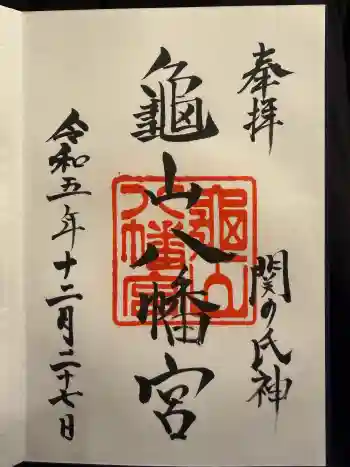 奉拝
関の氏神
龜山八幡宮
龜山八幡宮
令和五年十二月二十七日